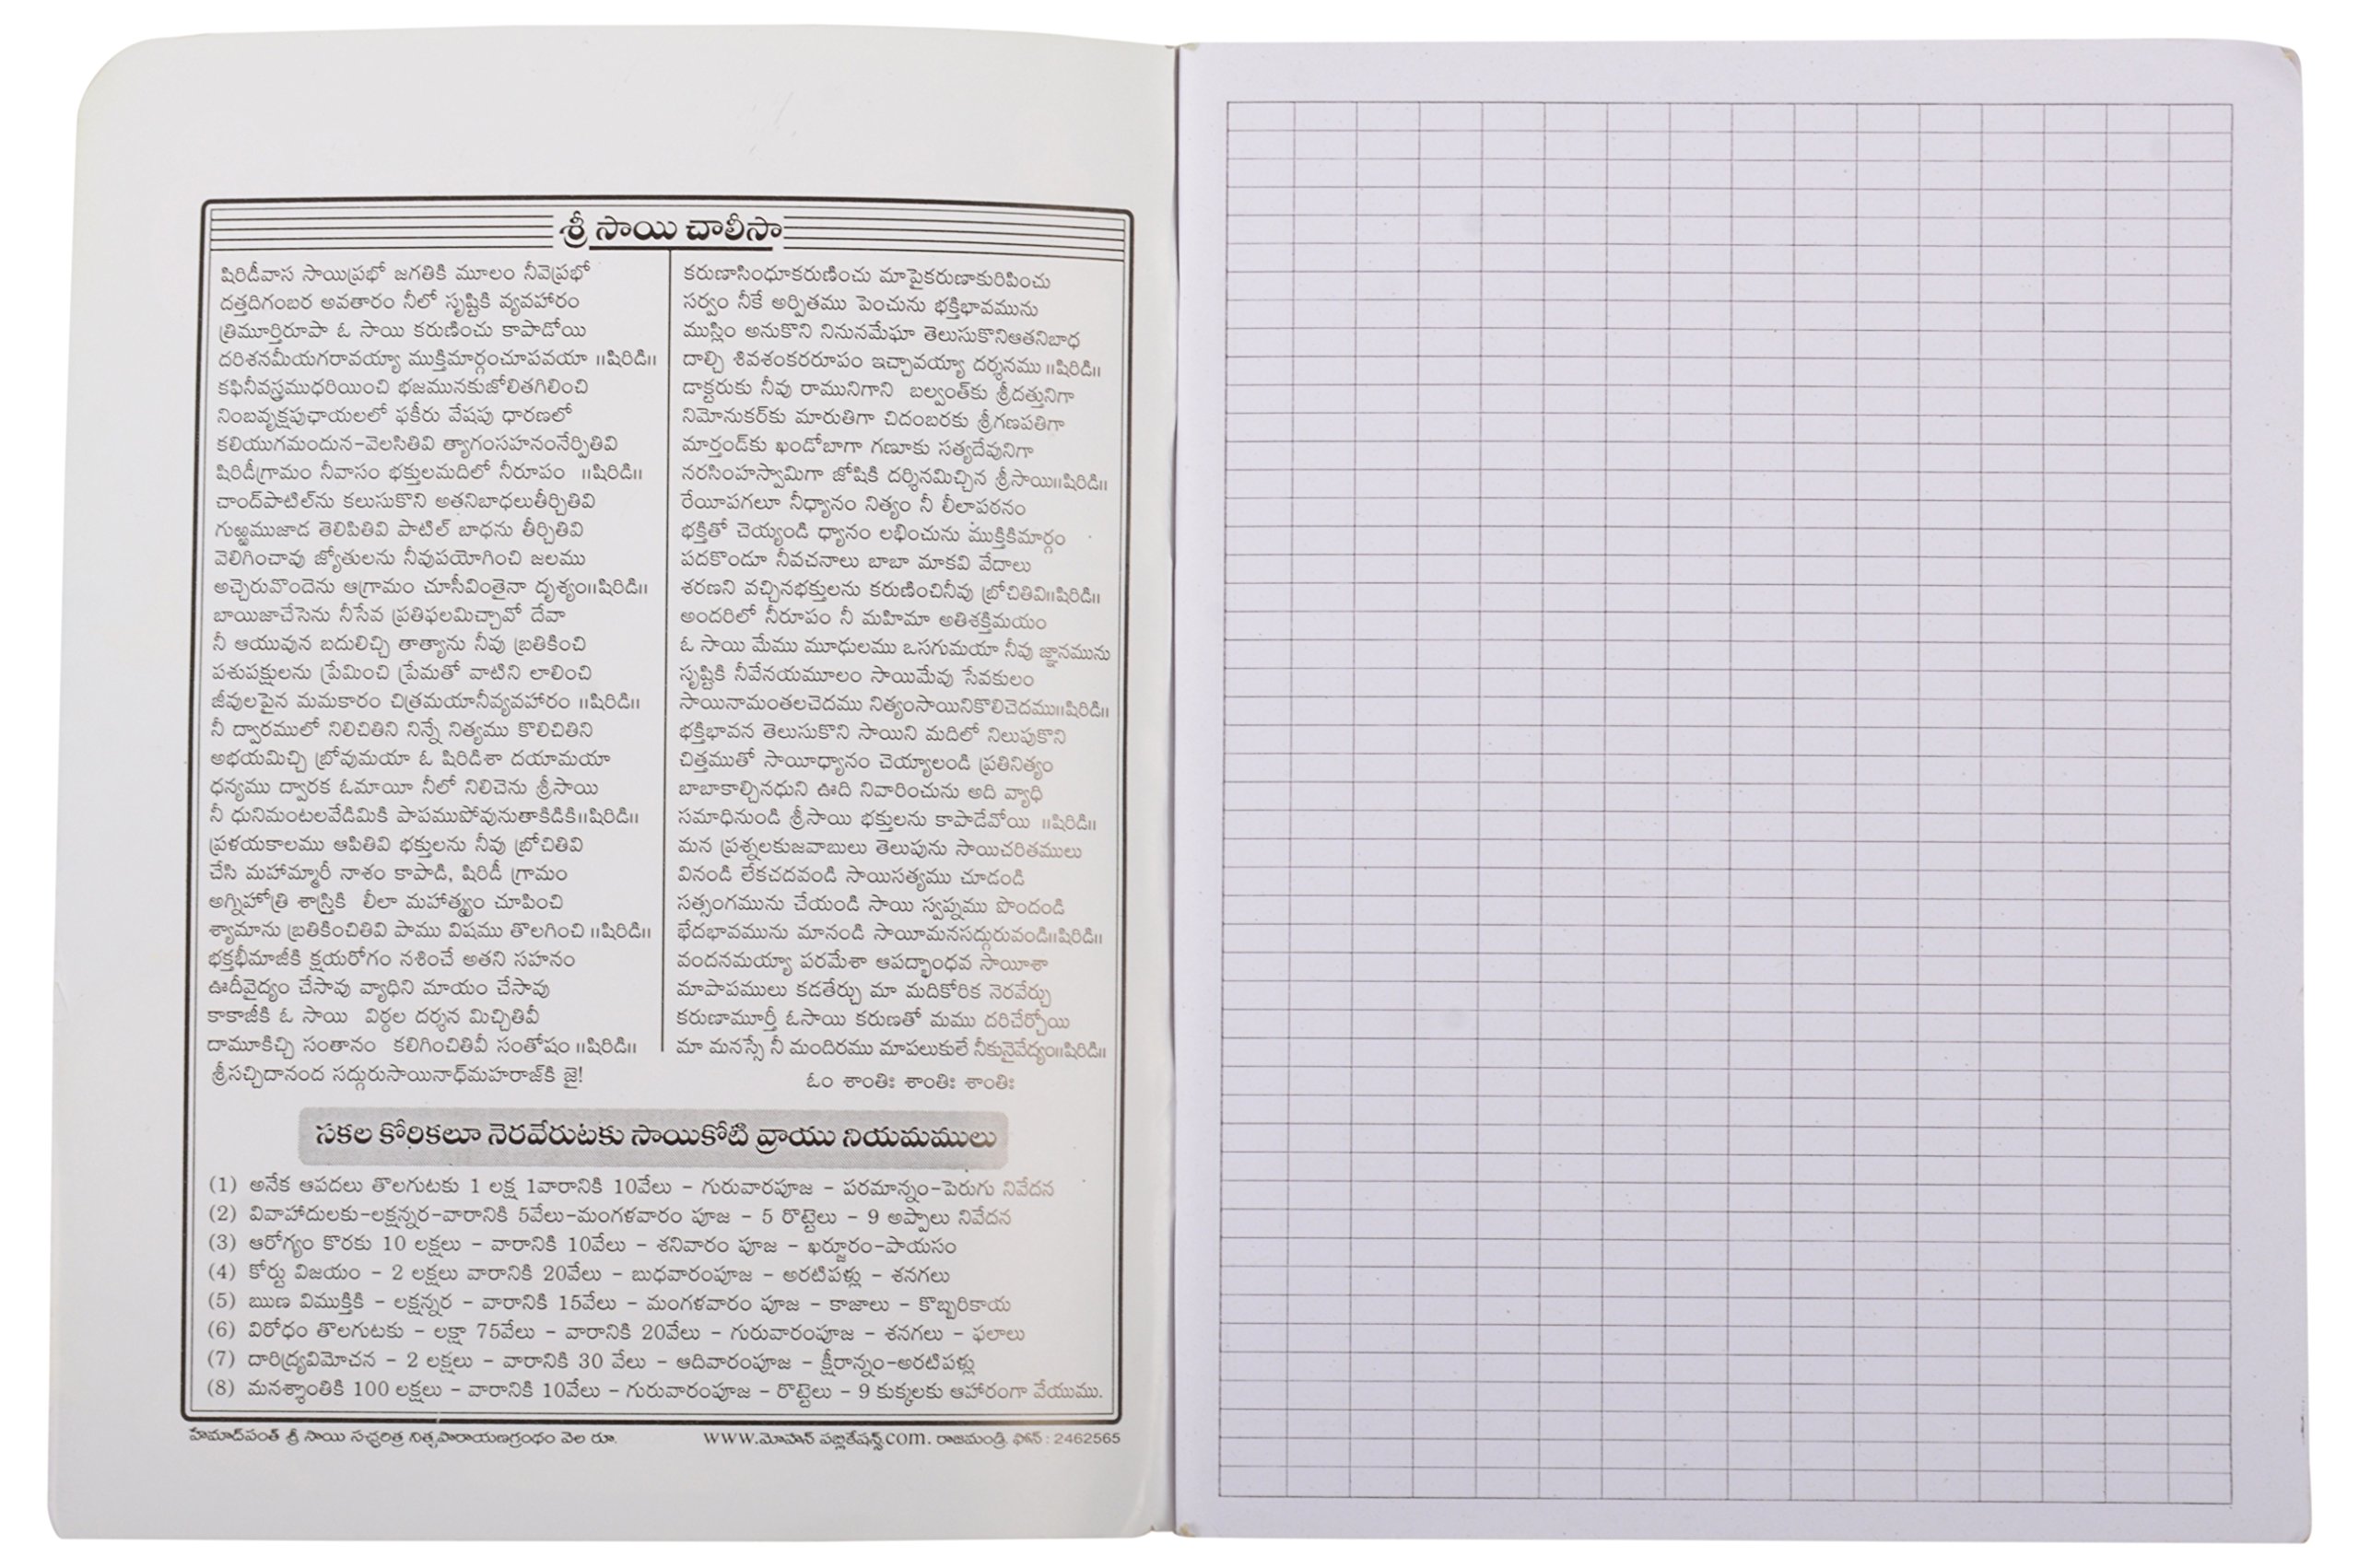 శ్రీ సాయి చాలీసా
షిరిడీవాస సాయిప్రభో జగతికి మూలం నీవెప్రభో
దత్తదిగంబర అవతారం నీలో సృష్టికి వ్యవహారం
త్రిమూర్తిరూపా ఓ సాయి కరుణించు కాపాడోయి
దరిశనమీయగరావయ్యా ముక్తిమార్గంచూపవయా ॥షిరిడి॥
కఫినీవస్త్రముధరియించి భజమునకుజోలితగిలించి
నింబవృక్షపుఛాయలలో ఫకీరు వేషపు ధారణలో
కలియుగమందున-వెలసితివి త్యాగంసహనంనేర్పితివి
షిరిడీగ్రామం నీవాసం భక్తులమదిలో నీరూపం ॥షిరిడి॥
చాంద్‌పాటిల్‌ను కలుసుకొని అతనిబాధలుతీర్చితివి
గుఱ్ఱముజాడ తెలిపితివి పాటిల్ బాధను తీర్చితివి
వెలిగించావు జ్యోతులను నీవుపయోగించి జలము
అచ్చెరువొందెను ఆగ్రామం చూసీవింతైనా దృశ్యం॥షిరిడి॥
బాయిజాచేసెను నీసేవ ప్రతిఫలమిచ్చావో దేవా
నీ ఆయువున బదులిచ్చి తాత్యాను నీవు బ్రతికించి
పశుపక్షులను ప్రేమించి ప్రేమతో వాటిని లాలించి
జీవులపైన మమకారం చిత్రమయానీవ్యవహారం ॥షిరిడి॥
నీ ద్వారములో నిలిచితిని నిన్నే నిత్యము కొలిచితిని
అభయమిచ్చి బ్రోవుమయా ఓ షిరిడిశా దయామయా
ధన్యము ద్వారక ఓమాయీ నీలో నిలిచెను శ్రీసాయి
నీ ధునిమంటలవేడిమికి పాపముపోవునుతాకిడికి॥షిరిడి॥
ప్రళయకాలము ఆపితివి భక్తులను నీవు బ్రోచితివి
చేసి మహామ్మారీ నాశం కాపాడి, షిరిడీ గ్రామం
అగ్నిహోత్రి శాస్త్రికి లీలా మహాత్మ్యం చూపించి
శ్యామాను బ్రతికించితివి పాము విషము తొలగించి ॥షిరిడి॥
భక్తభీమాజీకి క్షయరోగం నశించే అతని సహనం
ఊదీవైద్యం చేసావు వ్యాధిని మాయం చేసావు
కాకాజీకి ఓ సాయి విఠ్ఠల దర్శన మిచ్చితివీ
దామూకిచ్చి సంతానం కలిగించితివీ సంతోషం ॥షిరిడి॥
శ్రీసచ్చిదానంద సద్గురుసాయినాధ్‌మహరాజ్‌కి జై!
కరుణాసింధూకరుణించు మాపైకరుణాకురిపించు
సర్వం నీకే అర్పితము పెంచును భక్తిభావమును
ముస్లిం అనుకొని నినునమేఘా తెలుసుకొనిఆతనిబాధ
దాల్చి శివశంకరరూపం ఇచ్చావయ్యా దర్శనము ॥షిరిడి॥
డాక్టరుకు నీవు రామునిగాని బల్వంత్‌కు శ్రీదత్తునిగా
నిమోనుకర్‌కు మారుతిగా చిదంబరకు శ్రీగణపతిగా
మార్తండ్‌కు ఖండోబాగా గణూకు సత్యదేవునిగా
నరసింహస్వామిగా జోషికి దర్శినమిచ్చిన శ్రీసాయి॥షిరిడి॥
రేయీపగలూ నీధ్యానం నిత్యం నీ లీలాపఠనం
భక్తితో చెయ్యండి ధ్యానం లభించును ముక్తికిమార్గం
పదకొండూ నీవచనాలు బాబా మాకవి వేదాలు
శరణని వచ్చినభక్తులను కరుణించినీవు బ్రోచితివి॥షిరిడి॥
అందరిలో నీరూపం నీ మహిమా అతిశక్తిమయం
ఓ సాయి మేము మూఢులము ఒసగుమయా నీవు జ్ఞానమును
సృష్టికి నీవేనయమూలం సాయిమేవు సేవకులం
సాయినామంతలచెదము నిత్యంసాయినికొలిచెదము॥షిరిడి॥
భక్తిభావన తెలుసుకొని సాయిని మదిలో నిలుపుకొని
చిత్తముతో సాయీధ్యానం చెయ్యాలండి ప్రతినిత్యం
బాబాకాల్చినధుని ఊది నివారించును అది వ్యాధి
సమాధినుండి శ్రీసాయి భక్తులను కాపాడేవోయి ॥షిరిడి॥
మన ప్రశ్నలకుజవాబులు తెలుపును సాయిచరితములు
వినండి లేకచదవండి సాయిసత్యము చూడండి
సత్సంగమును చేయండి సాయి స్వప్నము పొందండి
భేదభావమును మానండి సాయీమనసద్గురువండి॥షిరిడి॥
వందనమయ్యా పరమేశా ఆపద్భాంధవ సాయీశా
మాపాపములు కడతేర్చు మా మదికోరిక నెరవేర్చు
కరుణామూర్తీ ఓసాయి కరుణతో మము దరిచేర్చోయి
మా మనస్సే నీ మందిరము మాపలుకులే నీకునైవేద్యం॥షిరిడి॥
ఓం శాంతిః శాంతిః శాంతిః
సకల కోరికలూ నెరవేరుటకు సాయికోటి వ్రాయు నియమములు
(1) అనేక ఆపదలు తొలగుటకు 1 లక్ష 1వారానికి 10వేలు - గురువారపూజ - పరమాన్నం-పెరుగు నివేదన
(2) వివాహాదులకు-లక్షన్నర-వారానికి 5వేలు-మంగళవారం పూజ - 5 రొట్టెలు - 9 అప్పాలు నివేదన
(3) ఆరోగ్యం కొరకు 10 లక్షలు - వారానికి 10వేలు - శనివారం పూజ - ఖర్జూరం-పాయసం
(4) కోర్టు విజయం - 2 లక్షలు వారానికి 20వేలు - బుధవారంపూజ - అరటిపళ్లు - శనగలు
(5) ఋణ విముక్తికి - లక్షన్నర - వారానికి 15వేలు - మంగళవారం పూజ - కాజాలు - కొబ్బరికాయ
(6) విరోధం తొలగుటకు - లక్షా 75వేలు - వారానికి 20వేలు - గురువారంపూజ - శనగలు - ఫలాలు
(7) దారిద్ర్యవిమోచన - 2 లక్షలు - వారానికి 30 వేలు - ఆదివారంపూజ - క్షీరాన్నం-అరటిపళ్లు
(8) మనశ్శాంతికి 100 లక్షలు - వారానికి 10వేలు - గురువారంపూజ - రొట్టెలు - 9 కుక్కలకు ఆహారంగా వేయుము.
హేమాద్‌పంత్ శ్రీ సాయి సచ్చరిత్ర నిత్యపారాయణగ్రంథం వెల రూ. www.మోహన్ పబ్లికేషన్స్.com. రాజమండ్రి. ఫోన్ : 2462565